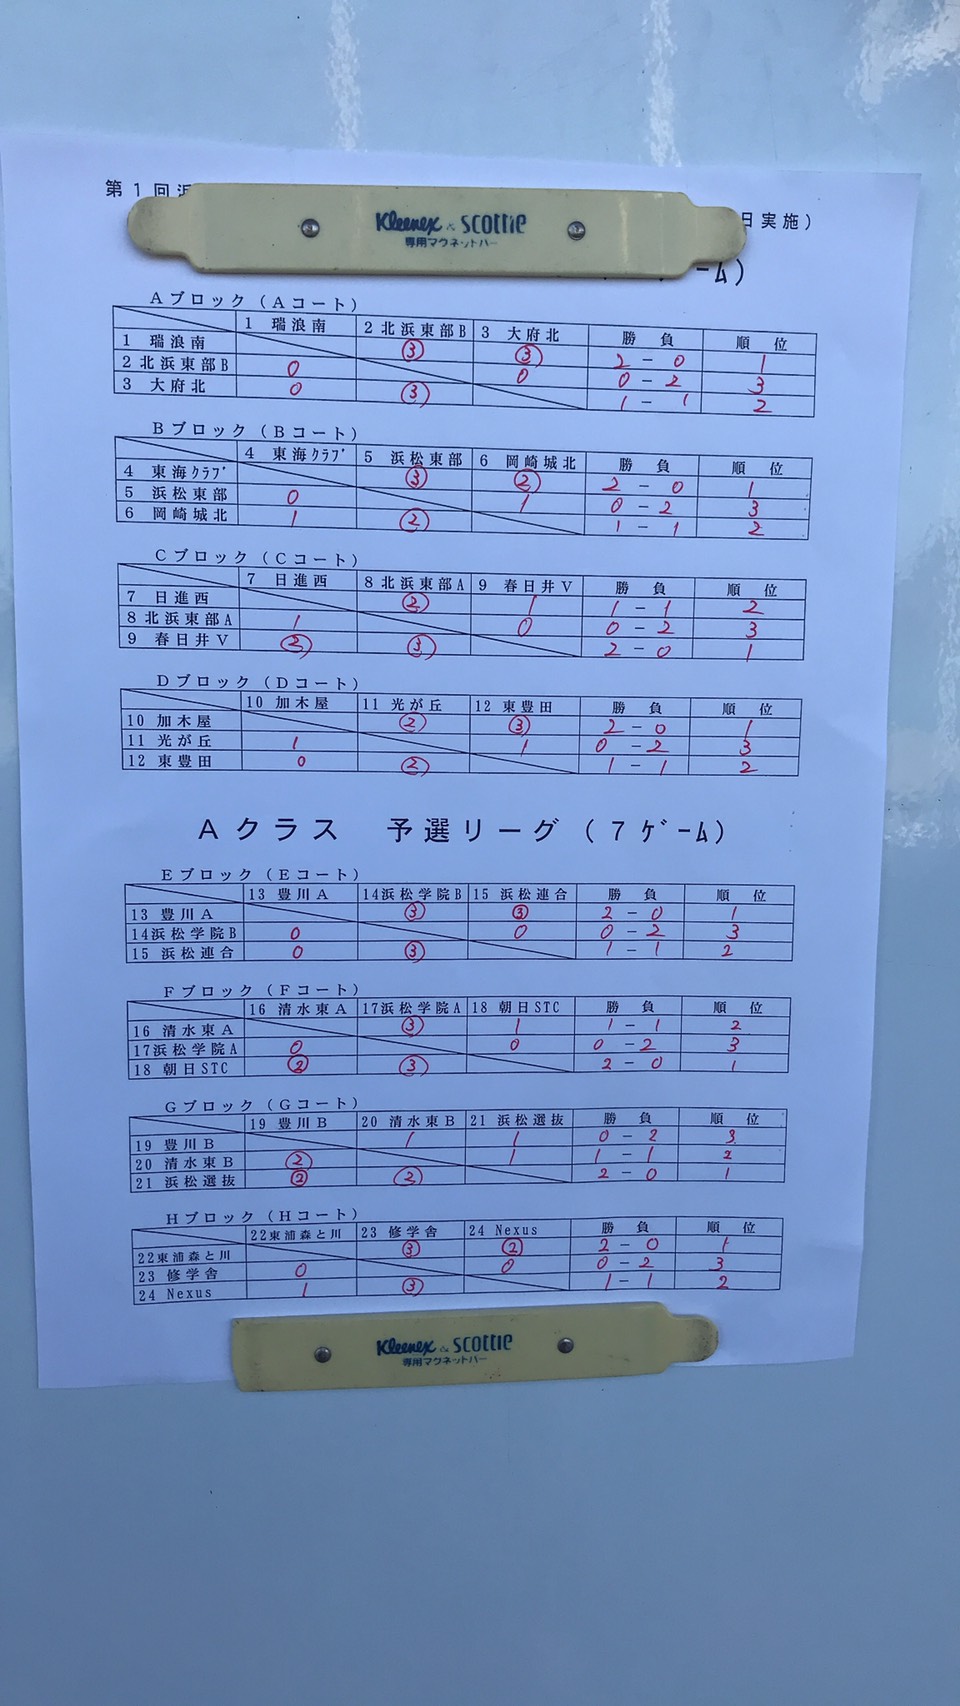 第1回浜
日実施)
Kleenex & SCOTTIE
専用マグネットバー
ーム)
Aブロック(Aコート)
1 瑞浪南 2北浜東部B 3 大府北 勝 負 順 位
1 瑞浪南 ③ ③ 2-0 1
2北浜東部B 0 0 0-2 3
3 大府北 0 ③ 1-1 2
Bブロック(Bコート)
4 東海クラブ 5 浜松東部 6 岡崎城北 勝 負 順 位
4 東海クラブ ③ ② 2-0 1
5 浜松東部 0 1 0-2 3
6 岡崎城北 1 ② 1-1 2
Cブロック(Cコート)
7 日進西 8北浜東部A 9 春日井V 勝 負 順 位
7 日進西 ② 1 1-1 2
8北浜東部A 1 0 0-2 3
9 春日井V ② ③ 2-0 1
Dブロック(Dコート)
10 加木屋 11 光が丘 12 東豊田 勝 負 順 位
10 加木屋 ② ③ 2-0 1
11 光が丘 1 1 0-2 3
12 東豊田 0 ② 1-1 2
Aクラス 予選リーグ(7ゲーム)
Eブロック(Eコート)
13 豊川A 14浜松学院B 15 浜松連合 勝 負 順 位
13 豊川A ③ ③ 2-0 1
14浜松学院B 0 0 0-2 3
15 浜松連合 0 ③ 1-1 2
Fブロック(Fコート)
16 清水東A 17浜松学院A 18 朝日STC 勝 負 順 位
16 清水東A ③ 1 1-1 2
17浜松学院A 0 0 0-2 3
18 朝日STC ② ③ 2-0 1
Gブロック(Gコート)
19 豊川B 20 清水東B 21 浜松選抜 勝 負 順 位
19 豊川B 1 1 0-2 3
20 清水東B ② 1 1-1 2
21 浜松選抜 ② ② 2-0 1
Hブロック(Hコート)
22東浦森と川 23 修学舎 24 Nexus 勝 負 順 位
22東浦森と川 ③ ② 2-0 1
23 修学舎 0 0 0-2 3
24 Nexus 1 ③ 1-1 2
Kleenex & SCOTTIE
専用マグネットバー